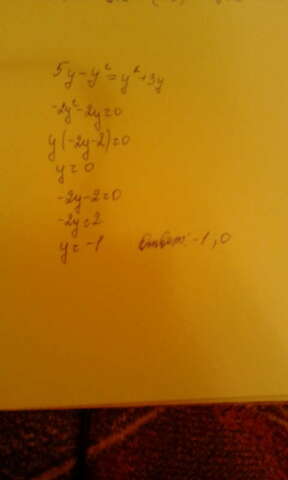 5y-y²=y²+3y
-2y²-2y=0
y(-2y-2)=0
y=0
-2y-2=0
-2y=2
y=-1 Ответ: -1; 0